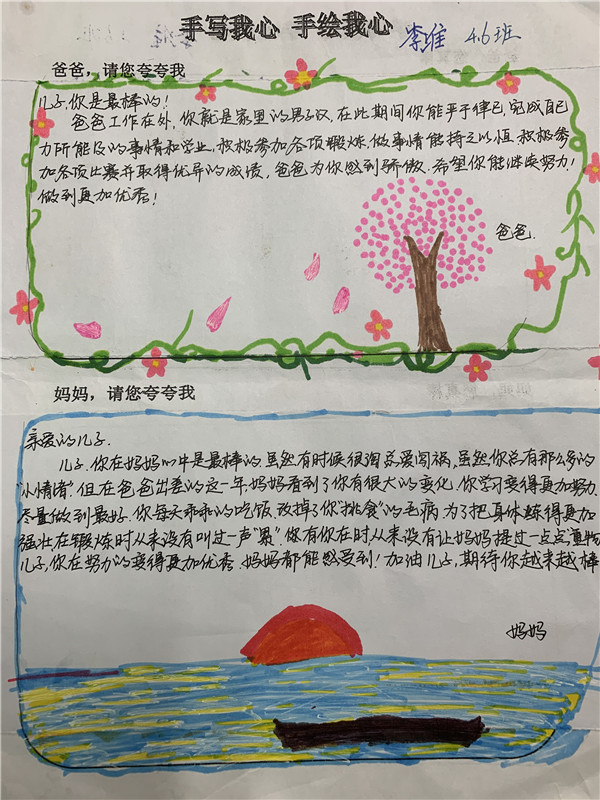 手写我心 手绘我心 李维 4.6班
爸爸，请您夸夸我
儿子，你是最棒的！
爸爸工作在外，你就是家里的男子汉，在此期间你能严于律己，完成自己
力所能及的事情和学业，积极参加各项锻炼，做事情能持之以恒，积极参
加各项比赛并取得优异的成绩，爸爸为你感到骄傲，希望你能继续努力！
做到更加优秀！
爸爸.
妈妈，请您夸夸我
亲爱的儿子.
儿子，你在妈妈心中是最棒的，虽然有时候很淘，总爱闯祸，虽然，你总有那么多的
“小情绪”，但在爸爸出差的这一年，妈妈看到了你有很大的变化，你学习变得更加努力，
尽量做到最好，你每天乖乖的吃饭，改掉了你“挑食”的毛病，为了把身体练得更加
强壮，在锻炼时从来没有叫过一声“累”，你有你在时从来没有让妈妈提过一点点重物
儿子，你在努力的变得更加优秀，妈妈都能感受到！加油儿子，期待你越来越棒
妈妈